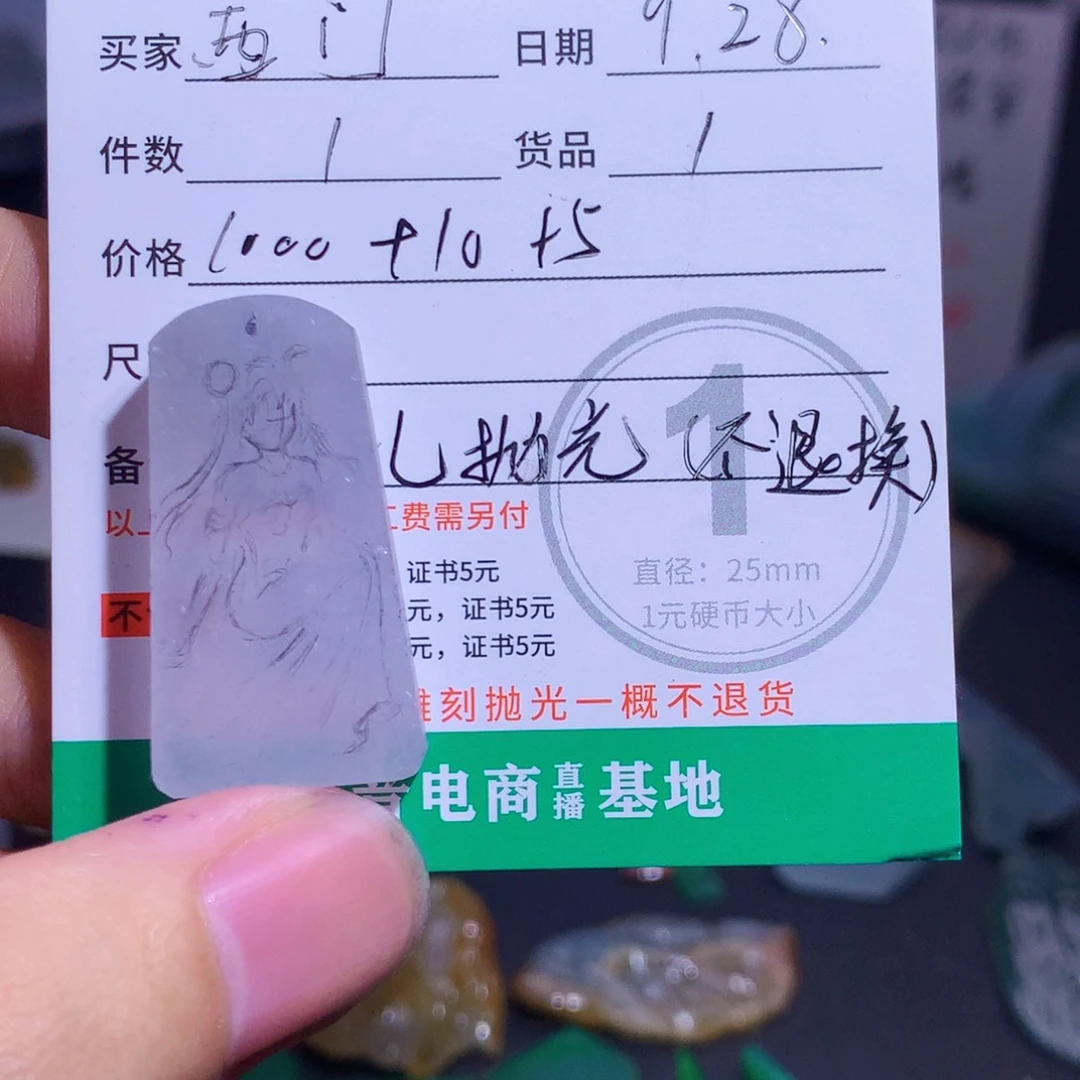 买家 西门 日期 9.28.
件数 1 货品 1
价格 1000+10+5
尺
备 抛光 (不退换)
以 费需另付
证书5元
不 元，证书5元
元，证书5元
1
直径：25mm
1元硬币大小
雕刻抛光一概不退货
电商直播基地